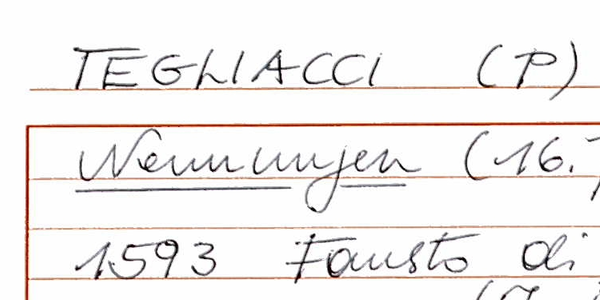 TEGLIACCI (P)
Nennungen (16.
1593 Fausto di